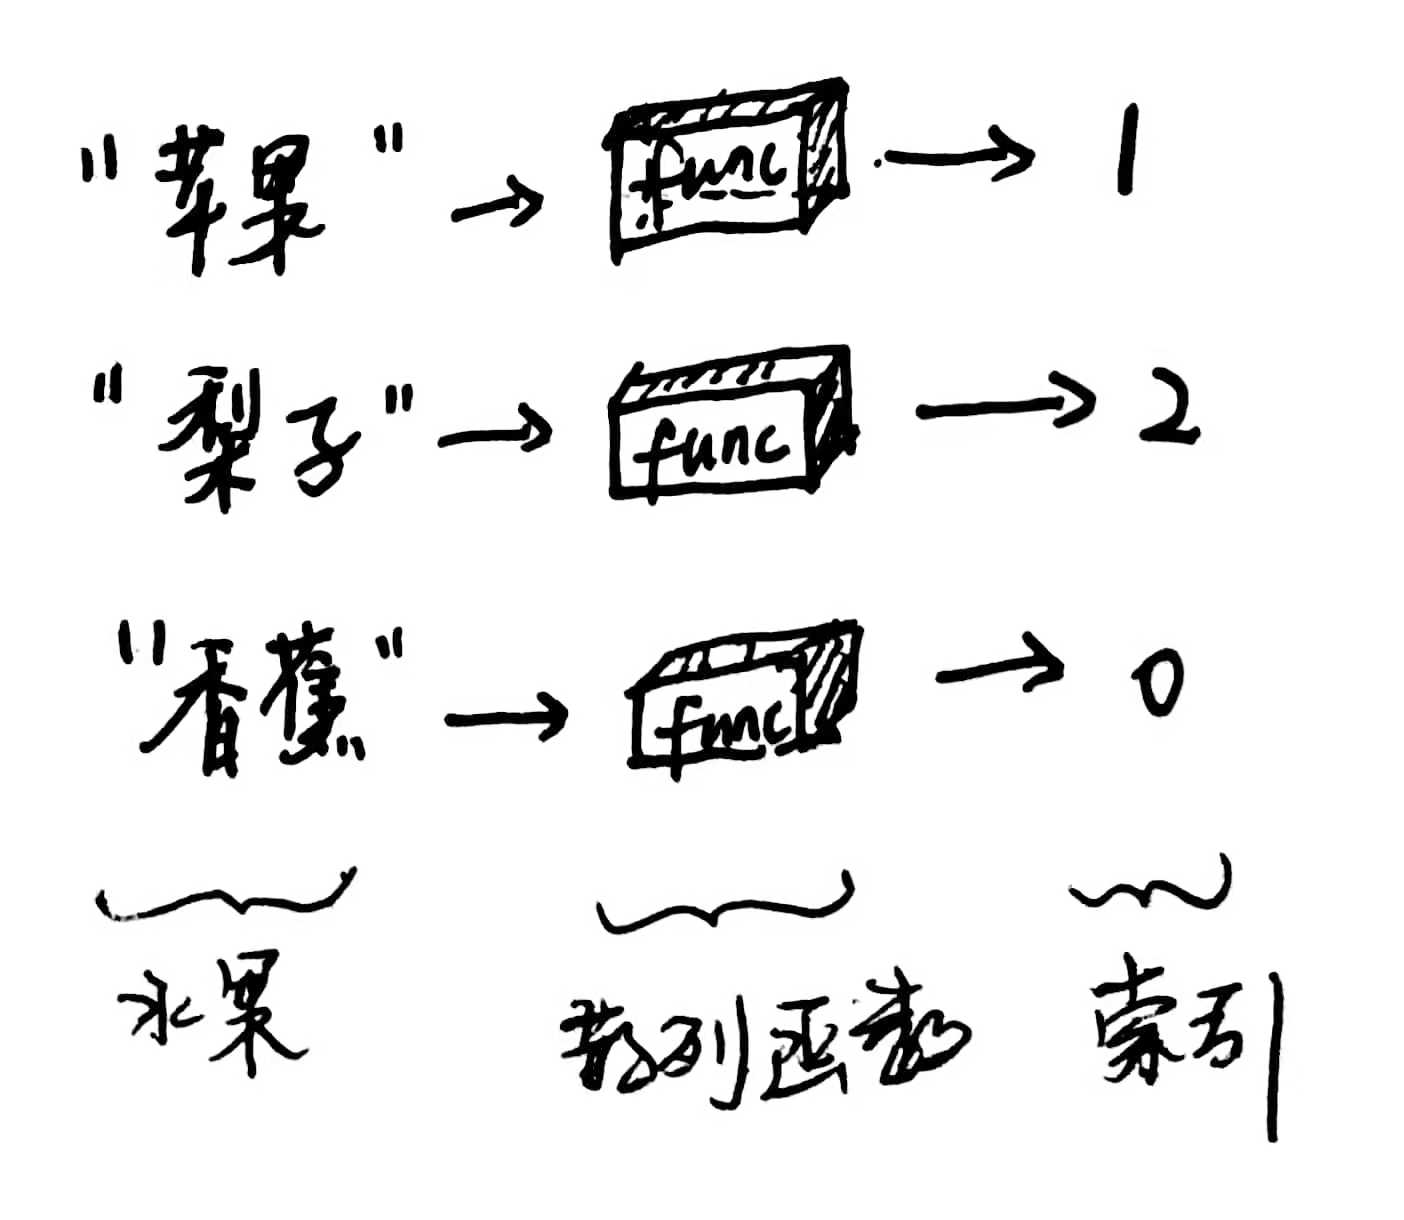 "苹果" → func → 1
"梨子" → func → 2
"香蕉" → func → 0
水果 散列函数 索引